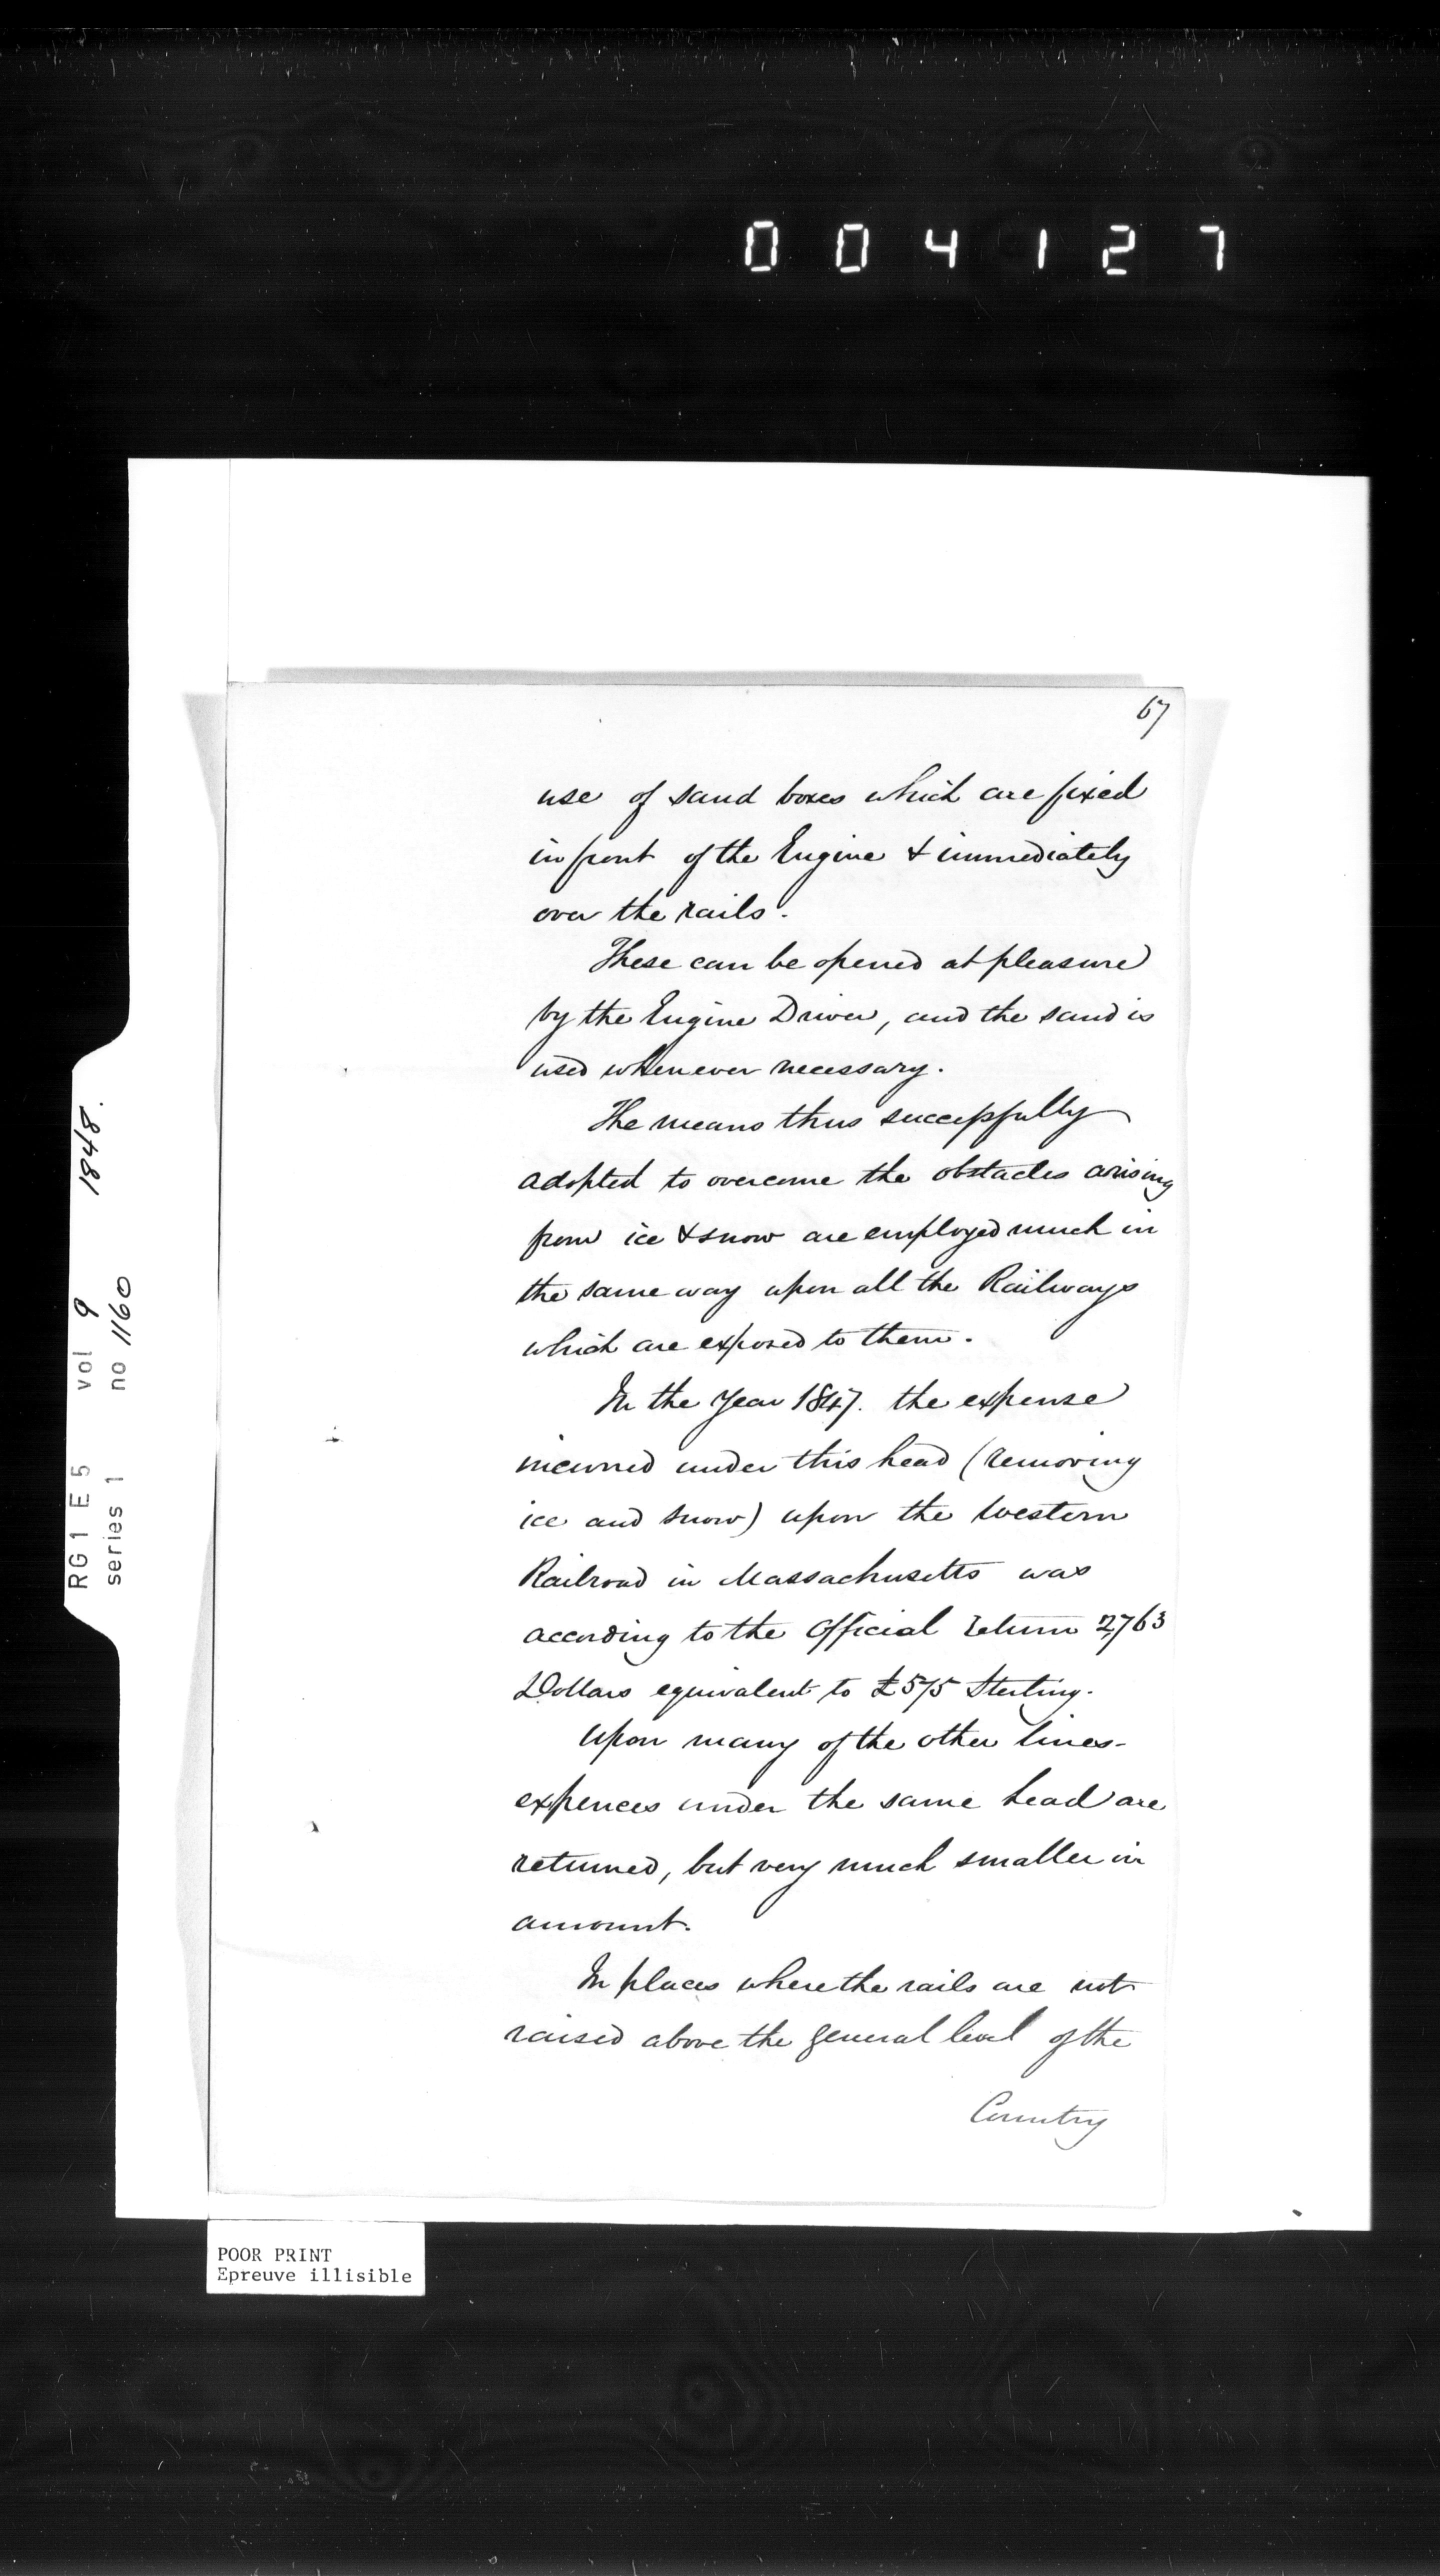 004127
67
use of sand boxes which are fixed
in front of the Engine & immediately
over the rails.
These can be opened at pleasure
by the Engine Driver, and the sand is
used whenever necessary.
The means thus successfully
adopted to overcome the obstacles arising
from ice & snow are employed much in
the same way upon all the Railways
which are exposed to them.
In the Year 1847. the expense
incurred under this head (removing
ice and snow) upon the Western
Railroad in Massachusetts was
according to the Official return 2,763
Dollars equivalent to £575 Sterling.
Upon many of the other lines-
expences under the same head are
returned, but very much smaller in
amount.
In places where the rails are not
raised above the general level of the
Country
RG1 E5 vol 9 1848.
series 1 no 1160
POOR PRINT
Epreuve illisible